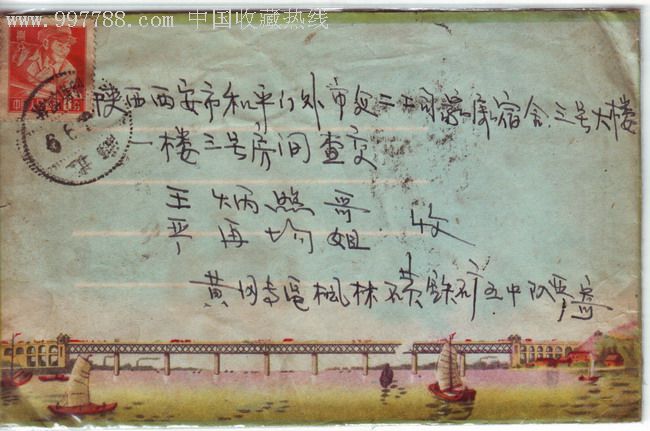 www.997788.com 中国收藏热线
捌
陕西西安市和平门外市交二公司家属宿舍三号大楼
一楼三号房间查交
王炳照哥
再均姐 收
黄冈专区枫林磺铁矿五中队